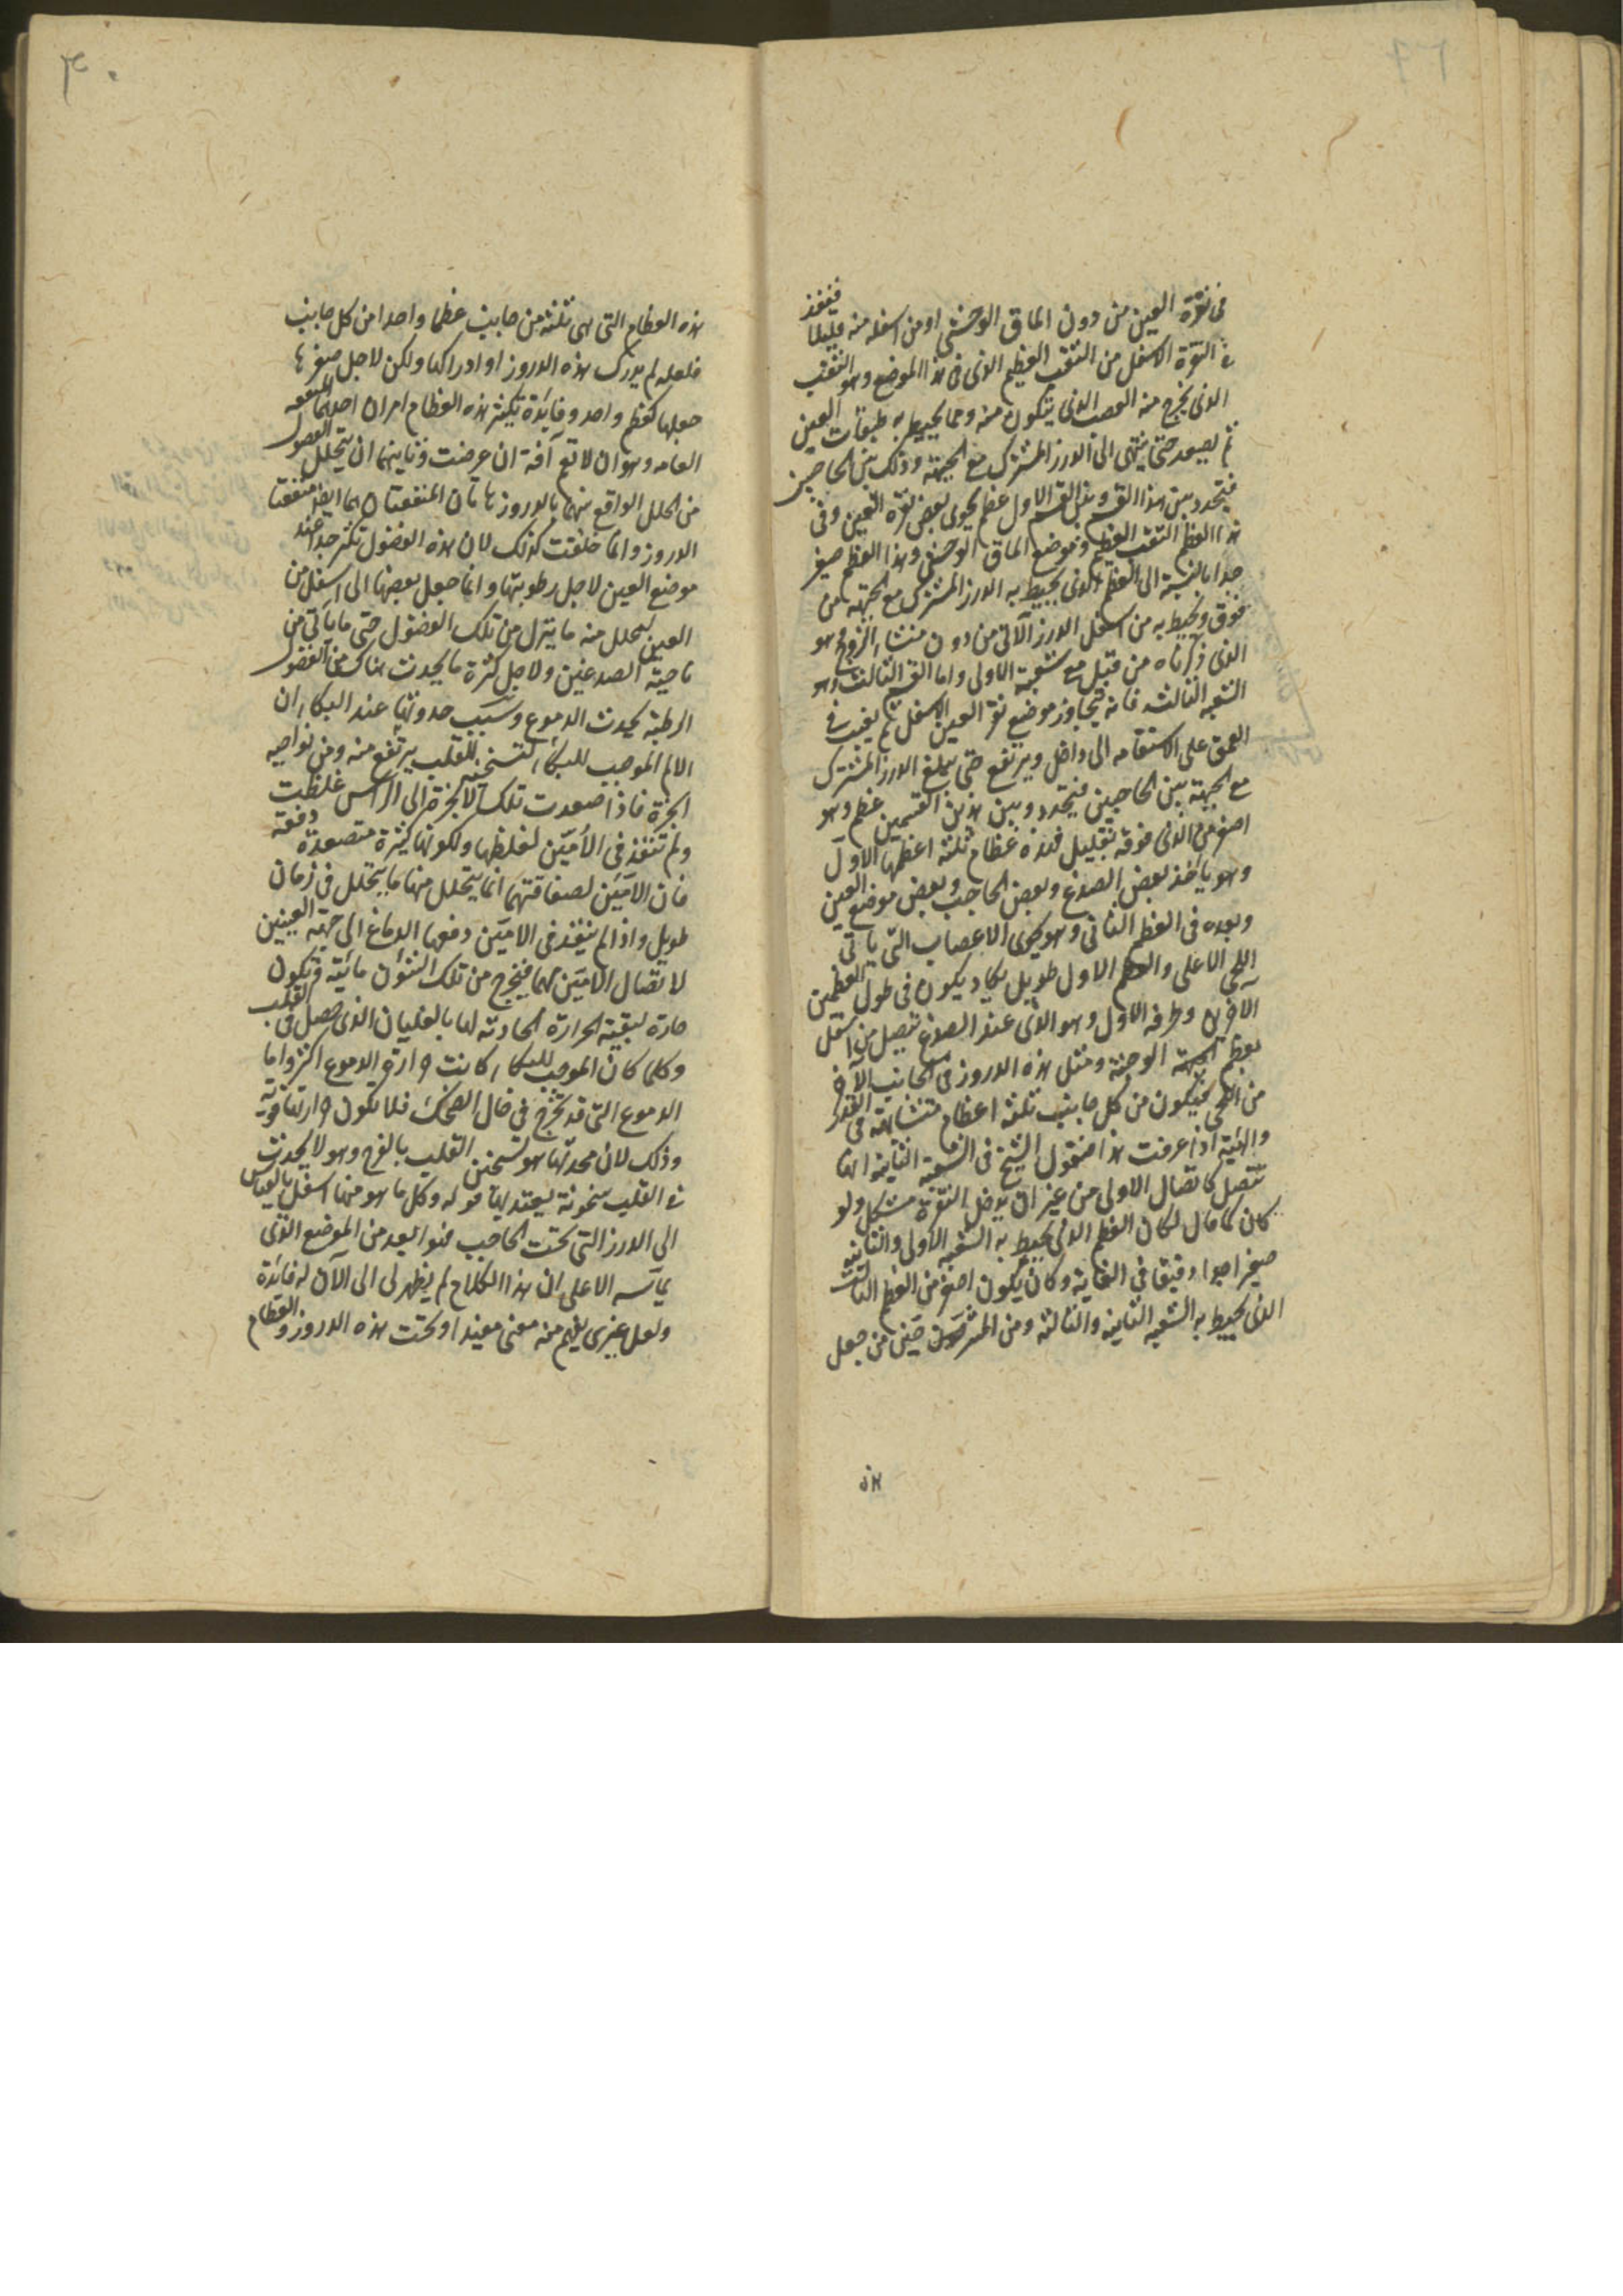 في نقرة العين من دون الماق الوحشي او من اسفله منه قليلا فينفذ
في النقرة الاسفل من الثقب العظيم الذي في هذا الموضع وهو الثقب
الذي يخرج منه العصب الذي يتكون منه ومما يحيط به طبقات العين
ثم يصعد حتى ينتهي الى الدرز المشترك مع الجبهة وذلك بين الحاجبين
فيتحدد بين هذا القسم وبين القسم الاول عظم يحوي بعض نقرة العين وفي
هذا العظم الثقب العظيم وموضع الماق الوحشي وهذا العظم صغير
جدا بالنسبة الى العظم الذي يحيط به الدرز المشترك مع الجبهة من
فوق ويحيط به من اسفل الدرز الآتي من دون منشاء الزوج وهو
الذي ذكرناه من قبل مع شعبته الاولى واما القسم الثالث وهو
الشعبه الثالثه فانه يتجاوز موضع نقر العين الاسفل ثم يغيب في
العمق على الاستقامه الى داخل ويرتفع حتى يبلغ الدرز المشترك
مع الجبهة بين الحاجبين فيتحدد وبين هذين القسمين عظم وهو
اصغر من الذي فوقه بقليل فهذه عظام ثلثة اعظمها الاول
وهو يأخذ بعض الصدغ وبعض الحاجب وبعض موضع العين
وبعده في العظم الثاني وهو يحوي الاعصاب التي يأتي
اللحي الاعلى والعظم الاول طويل يكاد يكون في طول العظمين
الآخرين وطرفه الاول وهو الذي عند الصدغ يتصل من اسفل
بعظم الوجنة ومثل هذه الدروز في الجانب الآخر
من اللحي فيكون من كل جانب ثلثة اعظام متشابهة في القدر
والهيئة اذا عرفت هذا فنقول الشيخ في الشعبة الثانية انها
تتصل كاتصال الاولى من غير ان يدخل النقرة مشكل ولو
كان كما قال لكان العظم الذي يحيط به الشعبه الاولى والثانيه
صغيرا جدا دقيقا في الغاية وكان يكون اصغر من العظم الثالث
الذي يحيط به الشعبه الثانيه والثالثه ومن المشرحين من جعل
هذه
هذه العظام التي هي ثلثة من جانب عظما واحدا من كل جانب
فلعله لم يدرك هذه الدروز او ادراكها ولكن لاجل صغرها
جعلها كعظم واحد وفائدة تكثر هذه العظام امران احدهما المنفعه
العامه وهو ان لا تعم آفة ان عرضت وثانيهما ان يتحلل الفضول
من الخلل الواقع بينها بالدروز هاتان المنفعتان هما ايضا منفعتا
الدروز وانما خلقت كذلك لان هذه الفضول تكثر جدا عند
موضع العين لاجل رطوبتها وانما جعل بعضها الى اسفل من
العين ليتحلل منه ما ينزل من تلك الفضول حتى ما يأتي من
ناحية الصدغين ولاجل كثرة ما يحدث هناك من الفضول
الرطبة يحدث الدموع وسبب حدوثها عند البكاء ان
الالم الموجب للبكاء لتسخينه للقلب يرتفع منه ومن نواحيه
ابخرة فاذا صعدت تلك الابخرة الى الرأس غلظت
ولم تنفذ في الأمّين لغلظها ولكونها كثيرة متصعدة دفعة
فان الامين لصفاقتهما انما يتحلل منها ما يتحلل في زمان
طويل واذا لم ينفذ في الامين دفعها الدماغ الى جهة العينين
لاتصال الامين بهما فيخرج من تلك الشؤن مائية وتكون
حارة لبقية الحرارة الحادثه لها بالغليان الذي حصل في القلب
وكلما كان الموجب للبكاء كانت حرارة الدموع اكثر واما
الدموع التي قد تخرج في حال الضحك فلا يكون حرارتها قوية
وذلك لان محدثها هو تسخين القلب بالفرح وهو لا يحدث
في القلب سخونة يعتد بها قوله وكل ما هو منها اسفل بالقياس
الى الدرز التي تحت الحاجب فهو ابعد من الموضع الذي
يماسه الاعلى ان هذا الكلام لم يظهر لي الى الآن له فائدة
ولعل غيري يفهم منه معنى مفيد اوتحت هذه الدروز والعظام